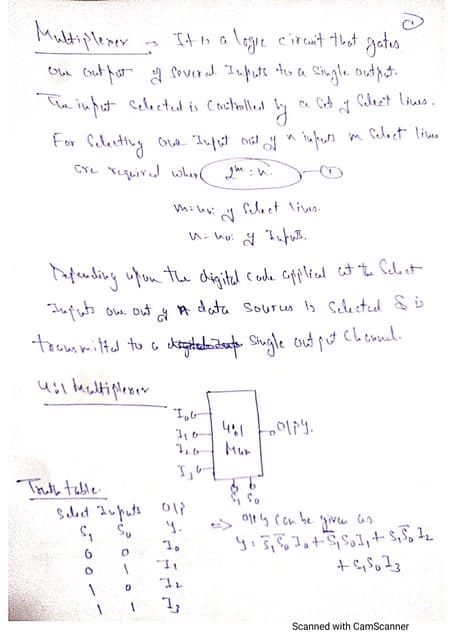 1
Multiplexer → It is a logic circuit that gates
one output of several Inputs to a single output.
The input selected is controlled by a set of select lines.
For selecting one Input out of n inputs m select lines
are required when 2^m = n. — ①
m = no: of select lines.
n = no: of Inputs.
Depending upon the digital code applied at the select
Inputs one out of n data sources is selected & is
transmitted to a single output channel.
4:1 Multiplexer
I0
I1
I2
I3
4:1
Mux
O/P Y.
S1 S0
Truth table.
Select Inputs O/P
S1 S0 Y.
0 0 I0
0 1 I1
1 0 I2
1 1 I3
⇒ O/P Y can be given as
Y = S̅1S̅0I0 + S̅1S0I1 + S1S̅0I2
+ S1S0I3
Scanned with CamScanner